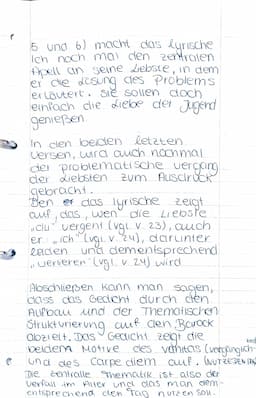 5 und 6) macht das lyrische
Ich noch mal den zentralen
Apell an seine Liebste, in dem
er die Lösung des Problems
erläutert. Sie sollen doch
einfach die Liebe der Jugend
genießen.
In den beiden letzten
Versen, wird auch nochmal
der problematische vergang
der Liebsten zum Ausdruck
gebracht.
Den das lyrische zeigt
auf, das, wen die Liebste
"du" vergeht (vgl. v. 23), auch
er "ich" (vgl. v. 24), darunter
leiden und dementsprechend
"verlieren" (vgl. v. 24) wird
Abschließen kann man sagen,
dass das Gedicht durch den
Aufbau und der Thematischen
Strukturierung auf den Barock
abzielt. Das Gedicht zeigt die
beiden Motive des vanitas (vergänglich-
und des Carpe diem auf.
Die zentralle Thematik ist also der
verfall im Alter und das man dem-
entsprechend den Tag nutzen soll.